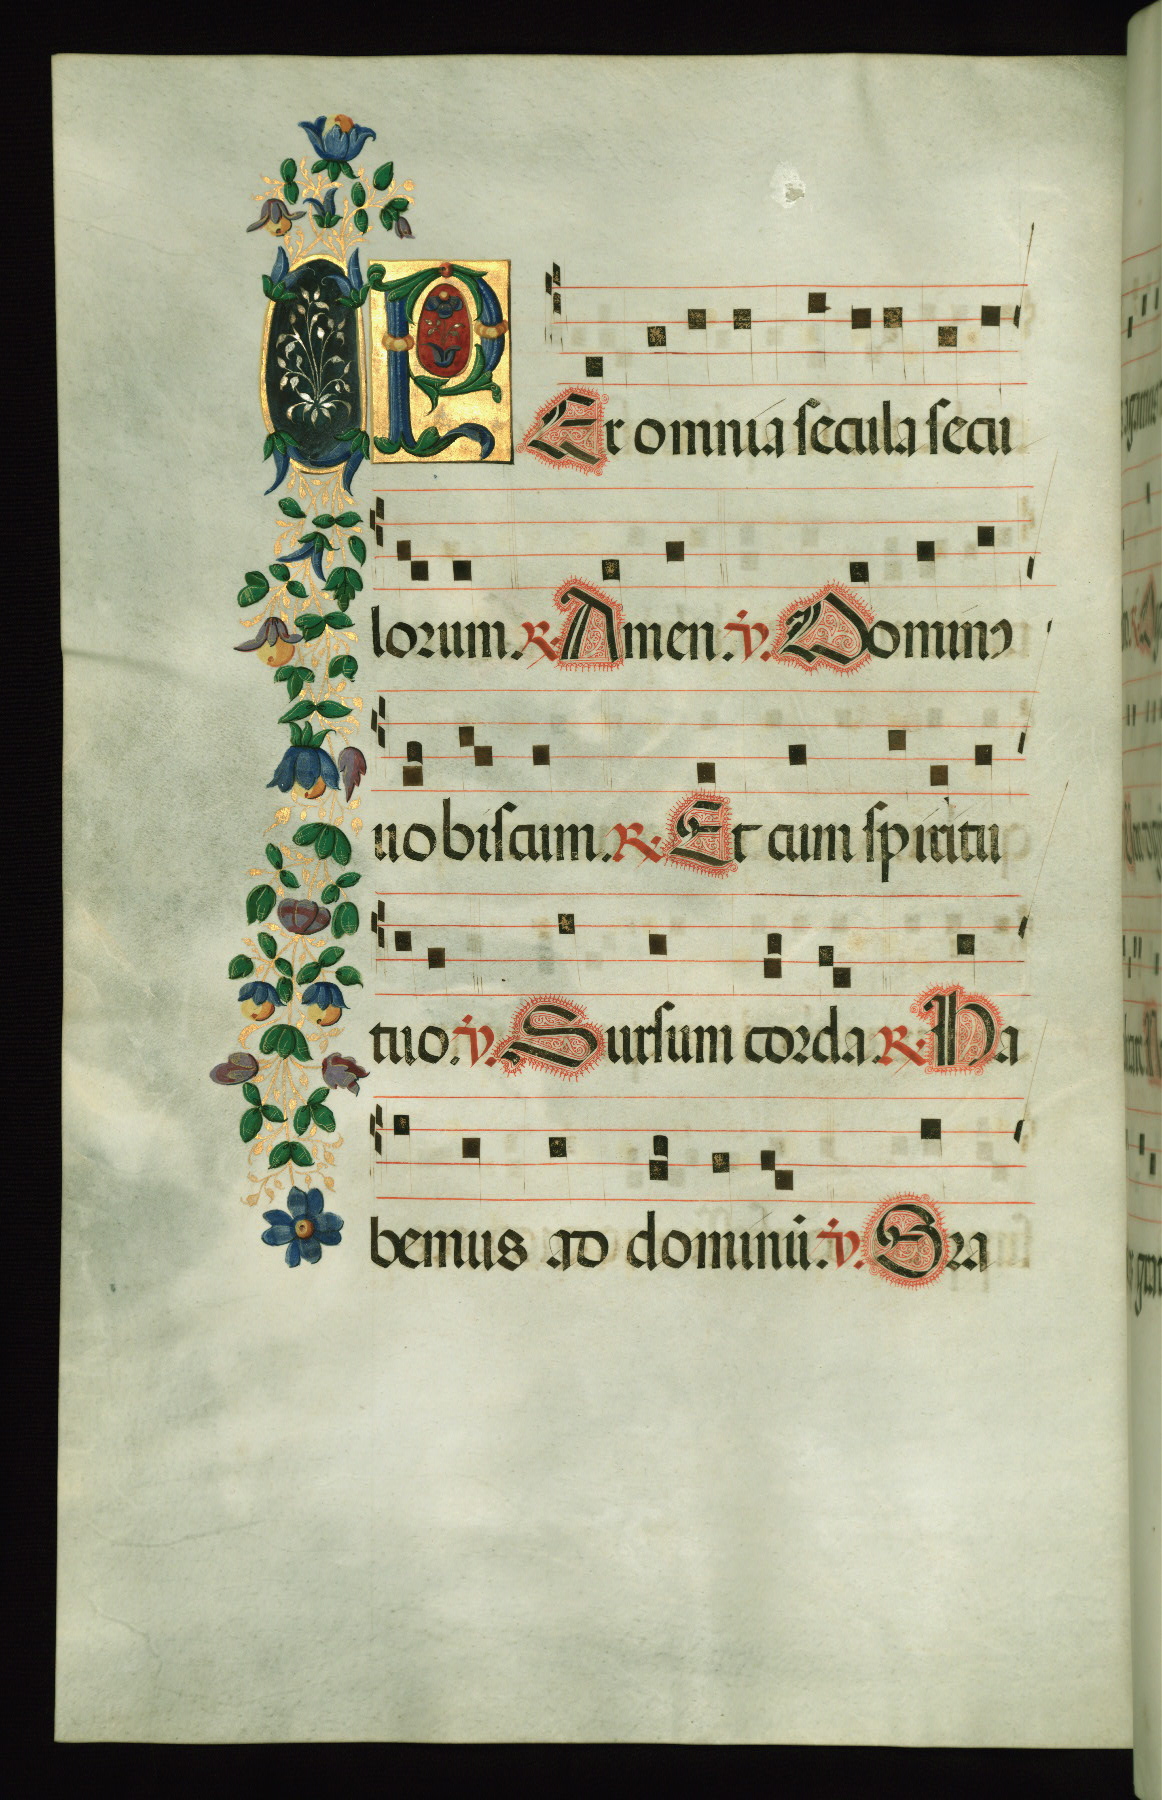 PEr omnia secula secu
lorum. ℟. Amen. ℣. Dominꝰ
uobiscum. ℟. Et cum spiritu
tuo. ℣. Sursum corda ℟. Ha
bemus ad dominū. ℣. Gra